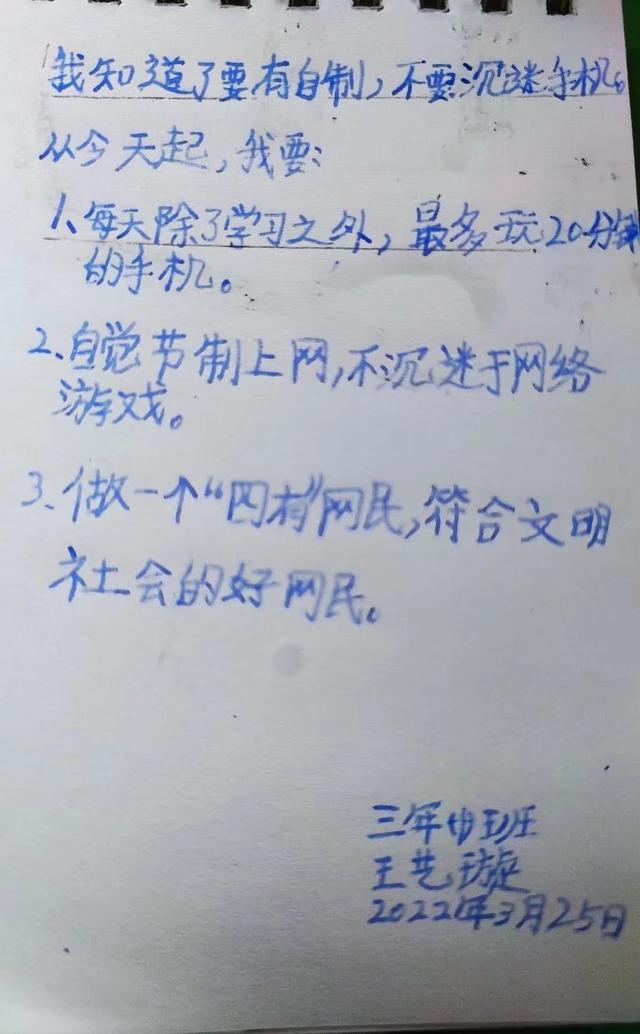 我知道了要有自制,不要沉迷手机。
从今天起,我要:
1、每天除了学习之外,最多玩20分钟
的手机。
2、自觉节制上网,不沉迷于网络
游戏。
3、做一个“四有”网民,符合文明
社会的好网民。
三年中班
王艺璇
2022年3月25日